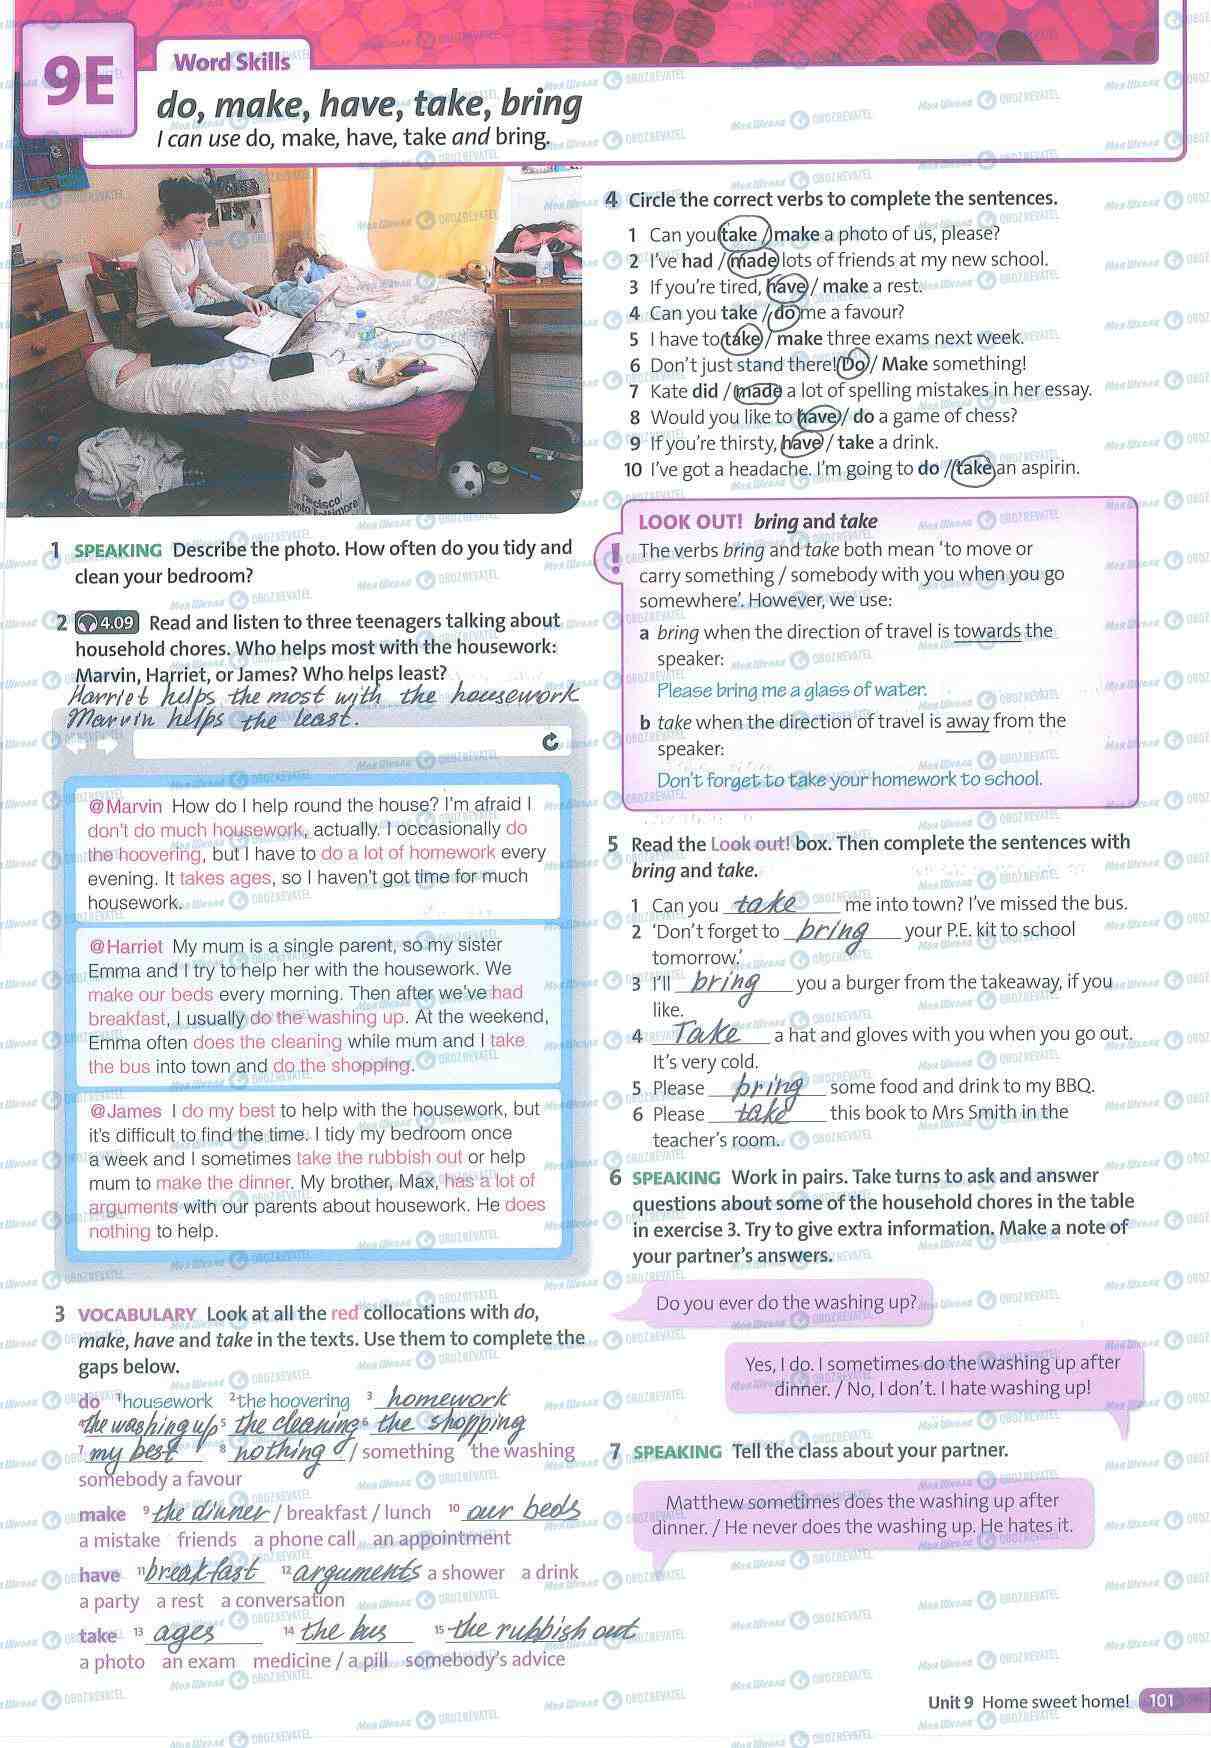 9E
Word Skills
do, make, have, take, bring
I can use do, make, have, take and bring.
1 SPEAKING Describe the photo. How often do you tidy and
clean your bedroom?
2 4.09 Read and listen to three teenagers talking about
household chores. Who helps most with the housework:
Marvin, Harriet, or James? Who helps least?
Harriet helps the most with the housework
Marvin helps the least.
@Marvin How do I help round the house? I'm afraid I
don't do much housework, actually. I occasionally do
the hoovering, but I have to do a lot of homework every
evening. It takes ages, so I haven't got time for much
housework.
@Harriet My mum is a single parent, so my sister
Emma and I try to help her with the housework. We
make our beds every morning. Then after we've had
breakfast, I usually do the washing up. At the weekend,
Emma often does the cleaning while mum and I take
the bus into town and do the shopping.
@James I do my best to help with the housework, but
it's difficult to find the time. I tidy my bedroom once
a week and I sometimes take the rubbish out or help
mum to make the dinner. My brother, Max, has a lot of
arguments with our parents about housework. He does
nothing to help.
3 VOCABULARY Look at all the red collocations with do,
make, have and take in the texts. Use them to complete the
gaps below.
do 1 housework 2 the hoovering 3 homework
4 the washing up 5 the cleaning 6 the shopping
7 my best 8 nothing / something the washing
somebody a favour
make 9 the dinner / breakfast / lunch 10 our beds
a mistake friends a phone call an appointment
have 11 breakfast 12 arguments a shower a drink
a party a rest a conversation
take 13 ages 14 the bus 15 the rubbish out
a photo an exam medicine / a pill somebody's advice
4 Circle the correct verbs to complete the sentences.
1 Can you take / make a photo of us, please?
2 I've had / made lots of friends at my new school.
3 If you're tired, have / make a rest.
4 Can you take / do me a favour?
5 I have to take / make three exams next week.
6 Don't just stand there! Do / Make something!
7 Kate did / made a lot of spelling mistakes in her essay.
8 Would you like to have / do a game of chess?
9 If you're thirsty, have / take a drink.
10 I've got a headache. I'm going to do / take an aspirin.
LOOK OUT! bring and take
! The verbs bring and take both mean 'to move or
carry something / somebody with you when you go
somewhere'. However, we use:
a bring when the direction of travel is towards the
speaker:
Please bring me a glass of water.
b take when the direction of travel is away from the
speaker:
Don't forget to take your homework to school.
5 Read the Look out! box. Then complete the sentences with
bring and take.
1 Can you take me into town? I've missed the bus.
2 'Don't forget to bring your P.E. kit to school
tomorrow.'
3 I'll bring you a burger from the takeaway, if you
like.
4 Take a hat and gloves with you when you go out.
It's very cold.
5 Please bring some food and drink to my BBQ.
6 Please take this book to Mrs Smith in the
teacher's room.
6 SPEAKING Work in pairs. Take turns to ask and answer
questions about some of the household chores in the table
in exercise 3. Try to give extra information. Make a note of
your partner's answers.
Do you ever do the washing up?
Yes, I do. I sometimes do the washing up after
dinner. / No, I don't. I hate washing up!
7 SPEAKING Tell the class about your partner.
Matthew sometimes does the washing up after
dinner. / He never does the washing up. He hates it.
Unit 9 Home sweet home! 101